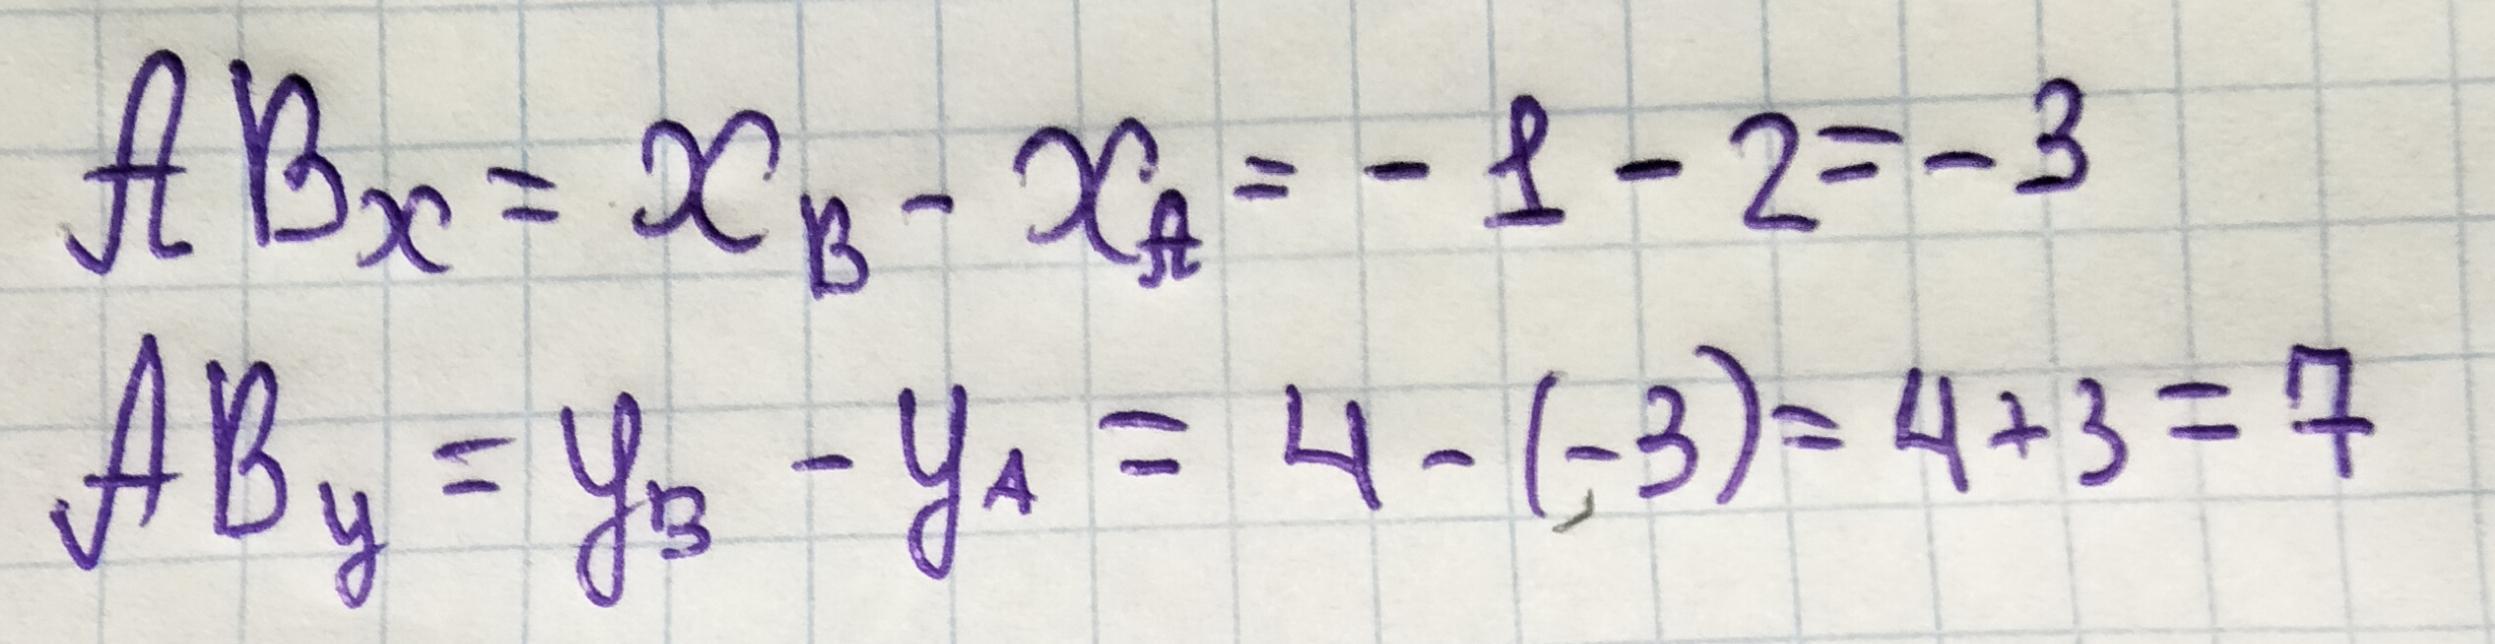 ABx = xB - xA = - 1 - 2 = - 3
ABy = yB - yA = 4 - (-3) = 4 + 3 = 7